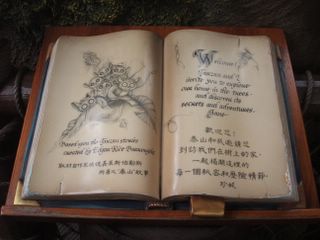 Based upon the Tarzan stories
created by Edgar Rice Burroughs
Welcome!
Tarzan and I
invite you to explore
our home in the trees
and discover its
secrets and adventures.
Jane
歡迎您!
泰山和我邀請您
到訪我們在樹上的家,
一起揭開這裡的
每一個秘密和歷險精節.
珍妮